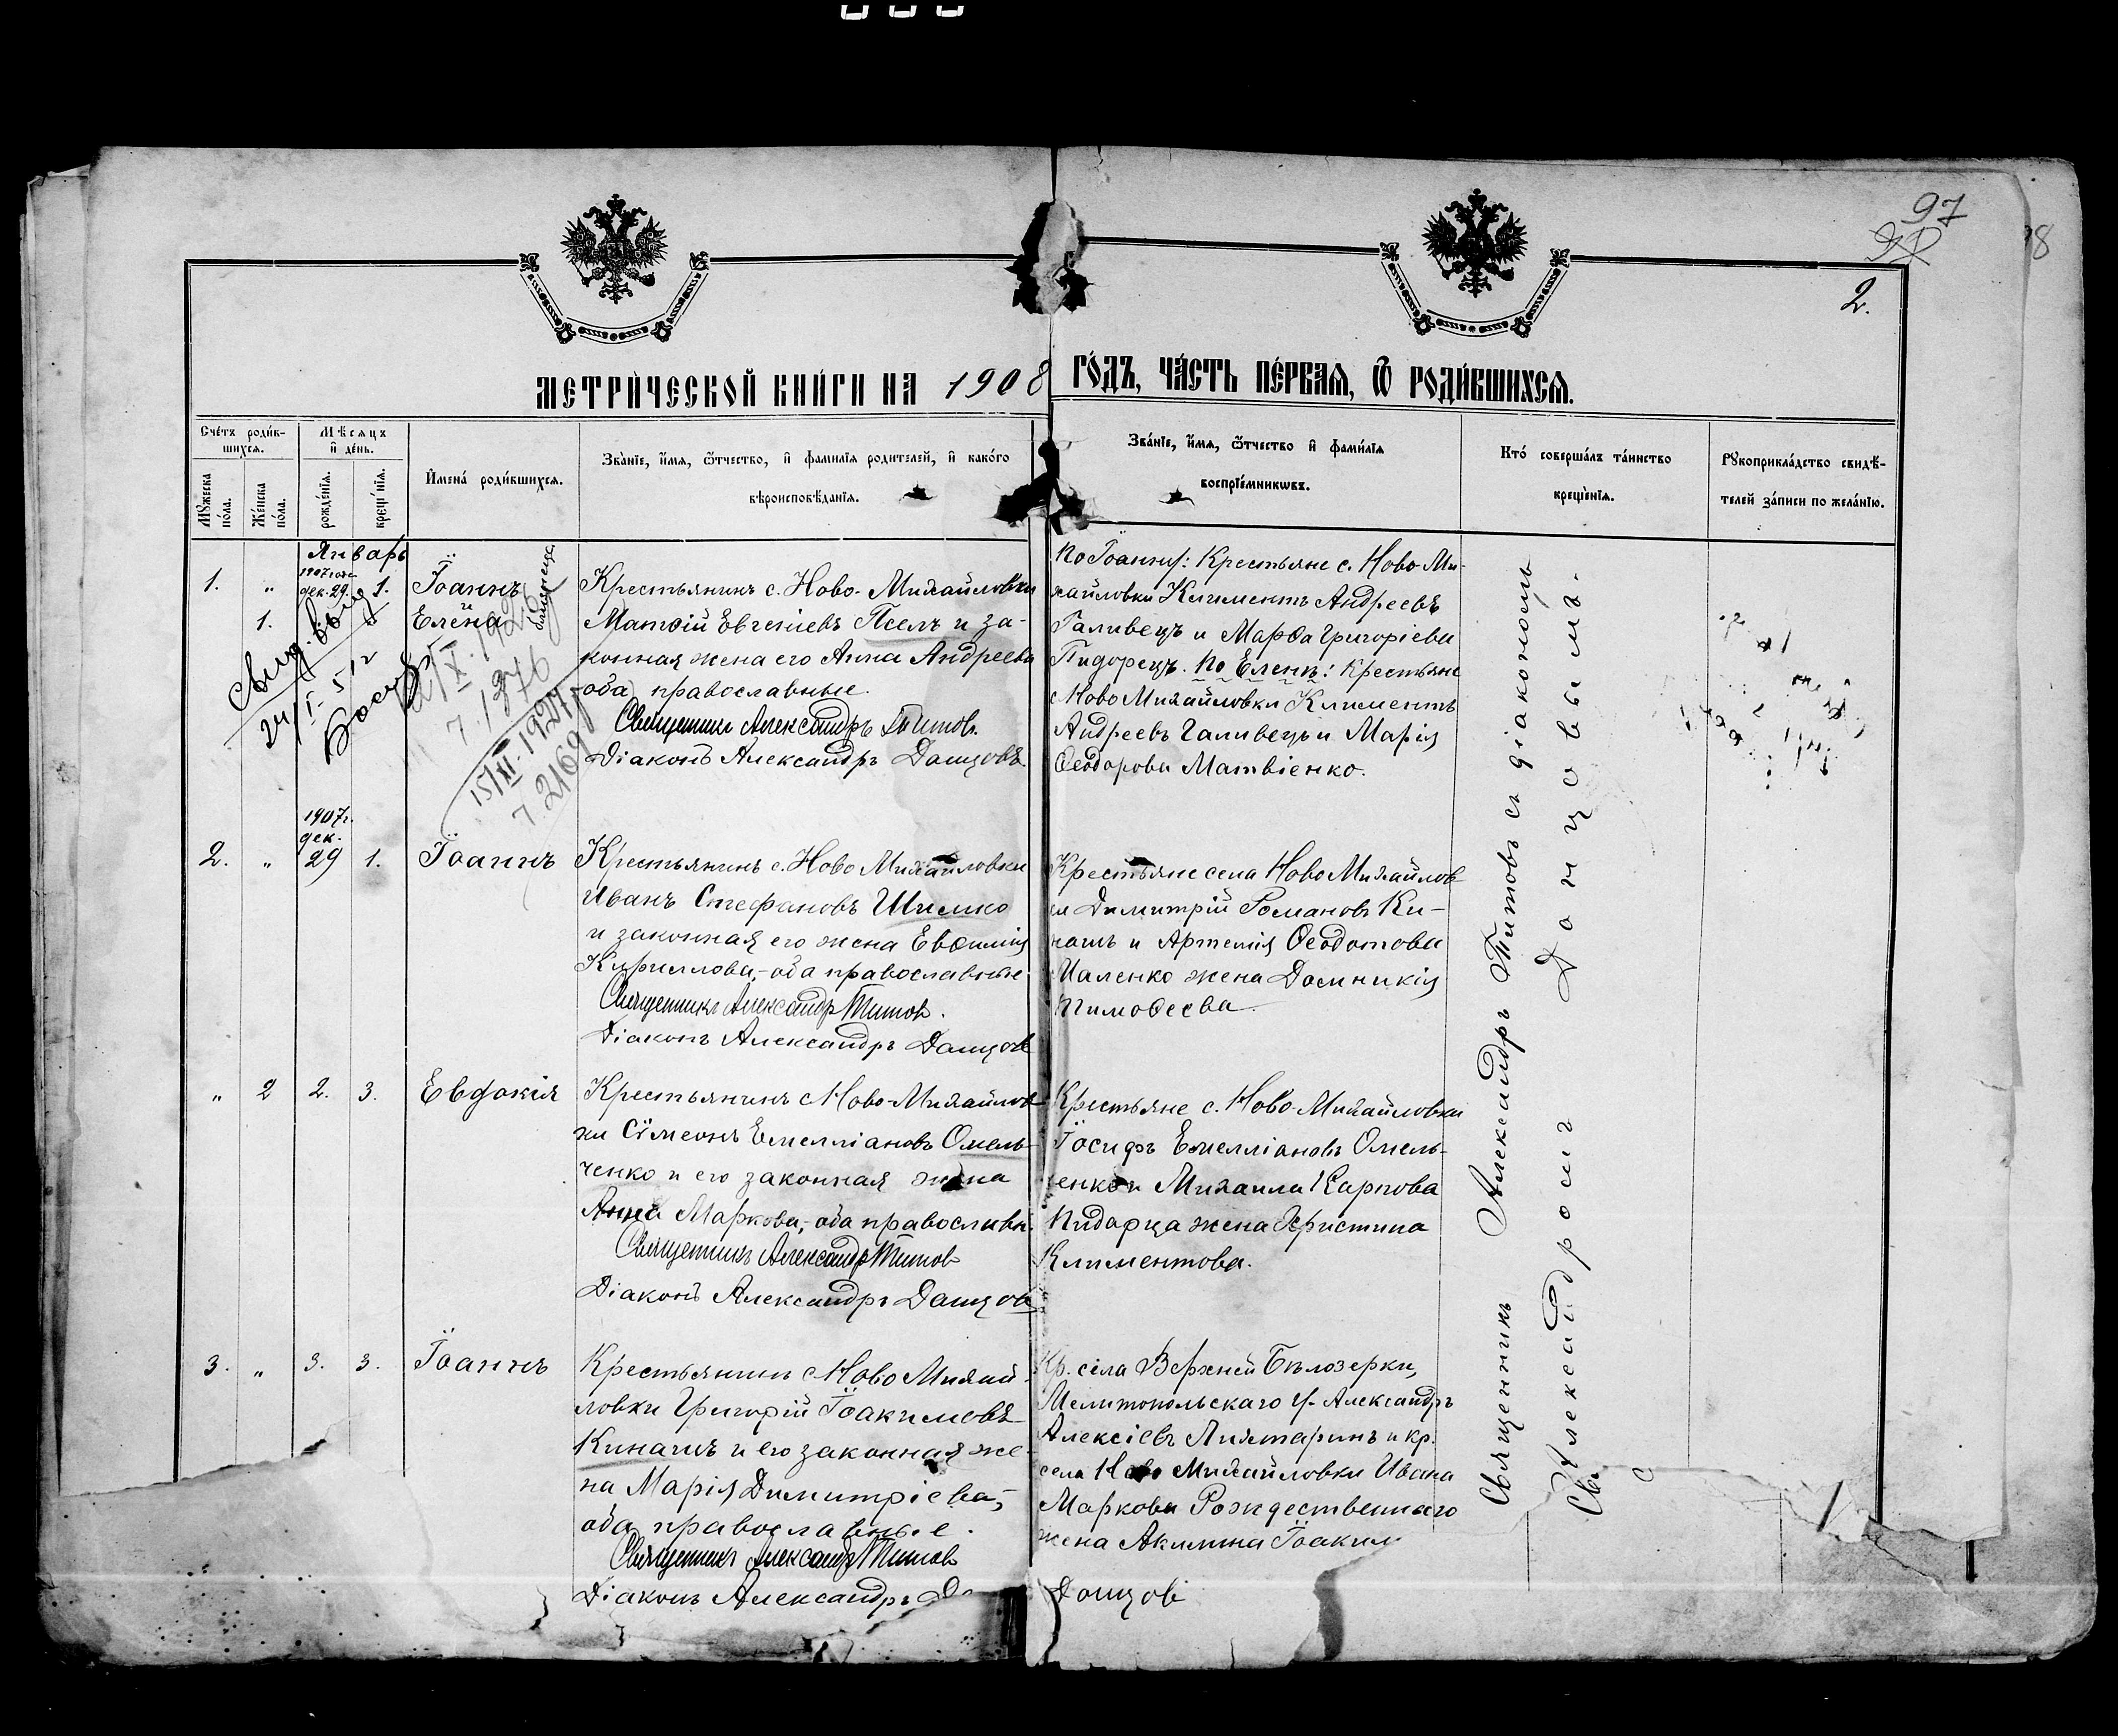 97
2.
МЕТРИ́ЧЕСКОЙ КНИ́ГИ НА 1908 ГО́ДЪ, ЧА́СТЬ ПЕ́РВАЯ, Ѿ РОДИ́ВШИХСЯ.
Сче́тъ роди́в-
шихся.
Мѣсяцъ
и де́нь.
Му́жеска
по́ла.
Же́нска
по́ла.
рожде́нія.
креще́нія.
Имена́ роди́вшихся.
Зва́нїе, и́мя, ѻ́тчество, и фами́лїя родителей, и како́го
вѣроисповѣ́данїя.
Зва́нїе, и́мя, ѻ́тчество и фами́лїя
воспрїе́мниковъ.
Кто́ соверша́лъ та́инство
креще́нїя.
Рукоприкла́дство свидѣ́-
телей за́писи по жела́нїю.
Январь
1. „ дек. 29. 1. Іоаннъ
1. и Елена
близнецы
24/I-512
15/XI.1927
7.2169
7.1376
Крестьянинъ с. Ново-Михайловки
Матѳій Евгеніевъ Пселъ и за-
конная жена его Анна Андреева
оба православные.
Священникъ Александръ Титовъ.
Діаконъ Александръ Данцовъ
По Іоанну: Крестьяне с. Ново-Ми-
хайловки Климентъ Андреевъ
Галивецъ и Марѳа Григоріева
Пидорецъ. По Еленѣ: Крестьяне
с Ново Михайловки Климентъ
Андреевъ Галивецъ и Марія
Ѳеодорова Матвіенко.
1907г.
дек.
2. „ 29 1. Іоаннъ
Крестьянинъ с. Ново Михайловки
Иванъ Стефановъ Шимко
и законная его жена Евѳимія
Кириллова,- оба православные.
Священникъ Александръ Титов.
Діаконъ Александръ Данцовъ
Крестьяне села Ново Михайлов
ки Димитрій Романовъ Ки-
нашъ и Артемія Ѳеодотова
жена Домникія
Тимоѳеева.
„ 2 2. 3. Евдокія
Крестьянинъ с Ново-Михайлов
ки Сѵмеонъ Емелліановъ Омель-
ченко и его законная жена
Анна Маркова,- оба православн.
Священникъ Александръ Титов
Діаконъ Александръ Данцовъ
Крестьяне с. Ново-Михайловки
Іосифъ Емелліановъ Омель-
ченко и Михаила Карпова
Пидорца жена Христина
Климентова.
3. „ 3. 3. Іоаннъ
Крестьянинъ с Ново Михай-
ловки Григорій Іоакимовъ
Кинашъ и его законная же-
на Марія Димитріева,-
оба православные.
Священникъ Александръ Титов
Діаконъ Александръ Данцовъ
Кр. села Верхней Бѣлозерки,
Мелитопольскаго у. Александръ
Алексіевъ Лихтаринъ и кр.
села Ново Михайловки Ивана
Маркова Рождественнаго
жена Акилина Іоаким
Священникъ Александръ Титовъ съ діакономъ
Александромъ Данцовымъ.